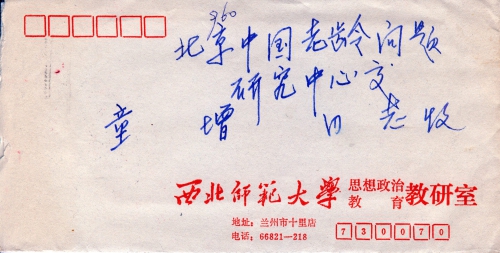 北京中国老龄问题
研究中心交
童 增 同志收
西北师范大学 思想政治教育 教研室
地址：兰州市十里店
电话：66821—218
730070